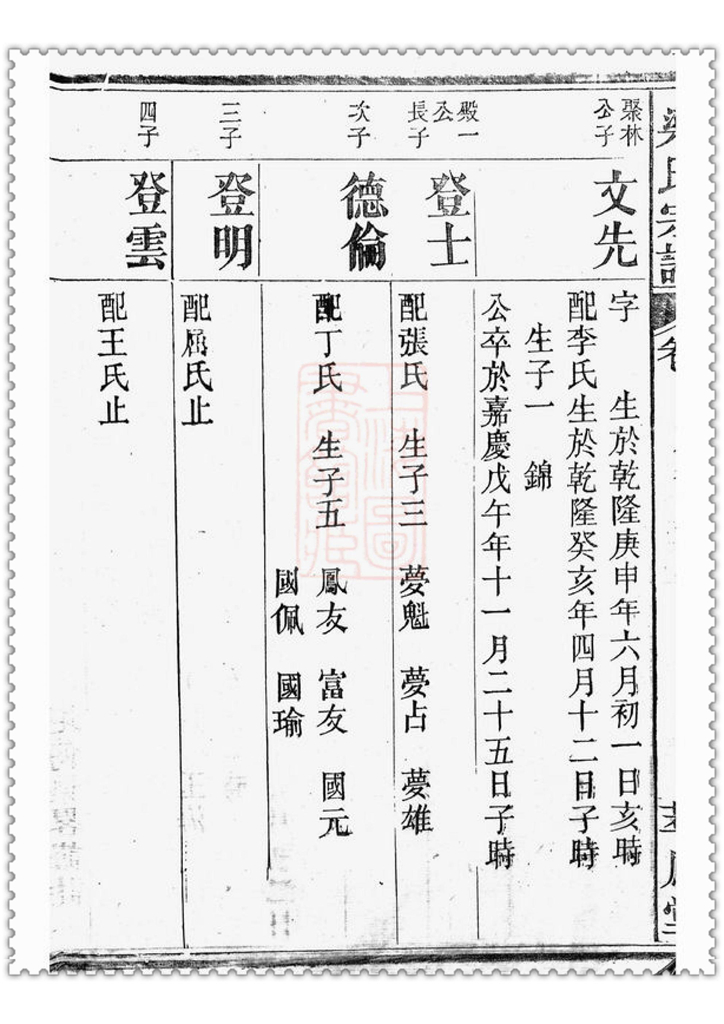 梁氏宗譜
卷
聚林
公子
文先
字 生於乾隆庚申年六月初一日亥時
配李氏生於乾隆癸亥年四月十二日子時
生子一 錦
公卒於嘉慶戊午年十一月二十五日子時
殿一
公
長子
登士
配張氏 生子三 夢魁 夢占 夢雄
次子
德倫
配丁氏 生子五 鳳友 富友 國元
國佩 國瑜
三子
登明
配屈氏止
四子
登雲
配王氏止